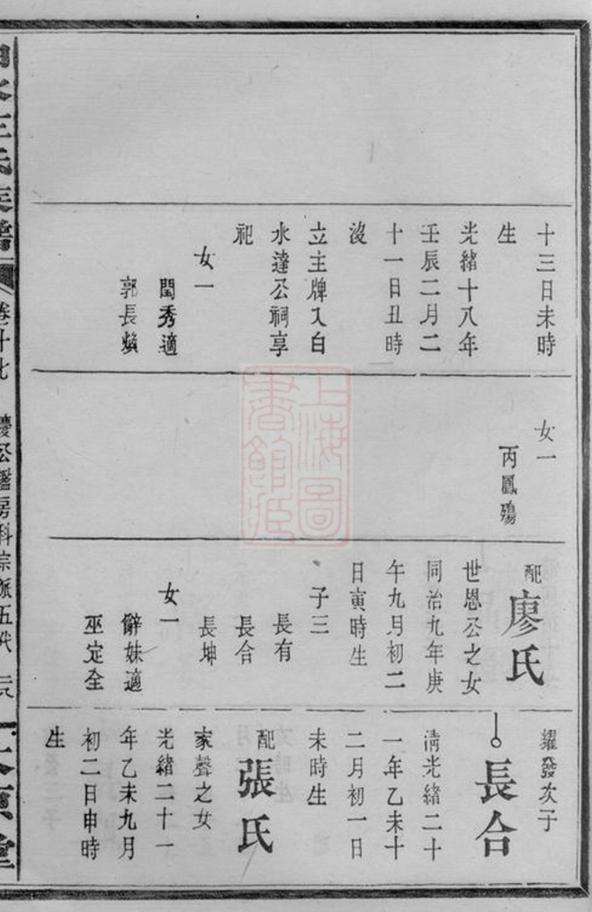 十三日未時
生
光緒十八年
壬辰二月二
十一日丑時
沒
立主牌入白
水達公祠享
祀
女一
閨秀適
郭長
女一
丙鳳殤
配廖氏
世恩公之女
同治九年庚
午九月初二
日寅時生
子三
長有
長合
長坤
女一
辭妹適
巫定全
耀發次子
長合
清光緒二十
一年乙未十
二月初一日
未時生
配張氏
家聲之女
光緒二十一
年乙未九月
初二日申時
生
水王氏族譜
卷廿七
公房科宗派五代
上海圖
書館